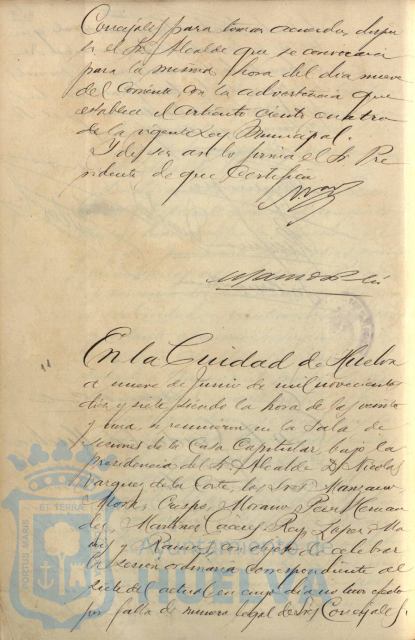 Concejales para tomar acuerdos, dispu-
so el Sr. Alcalde que se convocara
para la misma hora del dia nueve
del corriente con la advertencia que
establece el articulo ciento cuatro
de la vigente Ley Municipal.
Y de ser asi lo firma el Sr. Pre-
sidente de que certifico
En la Ciudad de Huelva
a nueve de Junio de mil novecientos
diez y siete siendo la hora de las veinte
y una, se reunieron en la Sala de
sesiones de la Casa Capitular, bajo la
presidencia del Sr. Alcalde D. Nicolas
Vazquez de la Corte, los Sres.
Crespo, Moreno, Hernan-
dez, Martinez, Lopez
y Ramos, con objeto de celebrar
la sesion ordinaria correspondiente al
siete del actual en cuyo dia no tuvo efecto
por falta de numero legal de Sres. Concejales.
PORTUS MARIS ET TERRAE
Ayuntamiento de
HUELVA